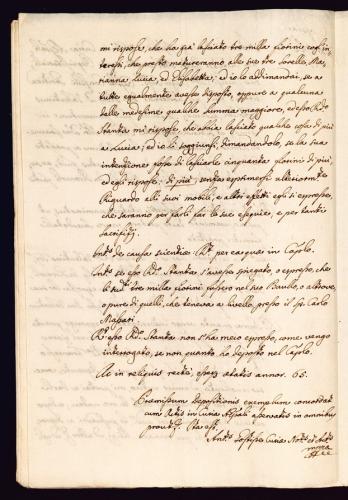 mi rispose, che ha già lasciato tre milla fiorini cogl'in-
teressi, che presto matureranno alle sue tre sorelle, Ma-
rianna, Lucia, ed Elisabetta; ed io lo addimandai, se a
tutte egualmente avesse disposto, oppure a qualcuna
delle medesime qualche summa maggiore, ed esso Rdo
Stanta mi rispose, che avria lasciato qualche cosa di più
a Lucia; ed io li soggiunsi, dimandandolo, se la sua
intentione fosse di lasciarle cinquanta fiorini di più,
ed egli rispose: di più, senza esprimersi
Riguardo alli suoi mobili, e altri effetti egli si espresse,
che saranno per farli far le sue esequie, e per tanti
sacrifizj.
Ints de causa scientiæ: Rt per ea quæ in Capolo.
Ints se esso Rdo Stanta s'avesse spiegato, o espresso, che
li sudti tre milla fiorini fussero nel suo Baullo, o altrove,
o pure di quelli, che teneva a livello presso il Sr Carlo
Maffati.
Rt esso Rdo Stanta non l'ha meco espresso, come vengo
interrogato, se non quanto ho deposto nel Capolo.
Ac in reliquis recte, esse ætatis annor. 65.
Præmissum Depositionis exemplum concordat
cum in Curia asservatis in omnibus
prout Ita est.
Ants Curiæ Nots et